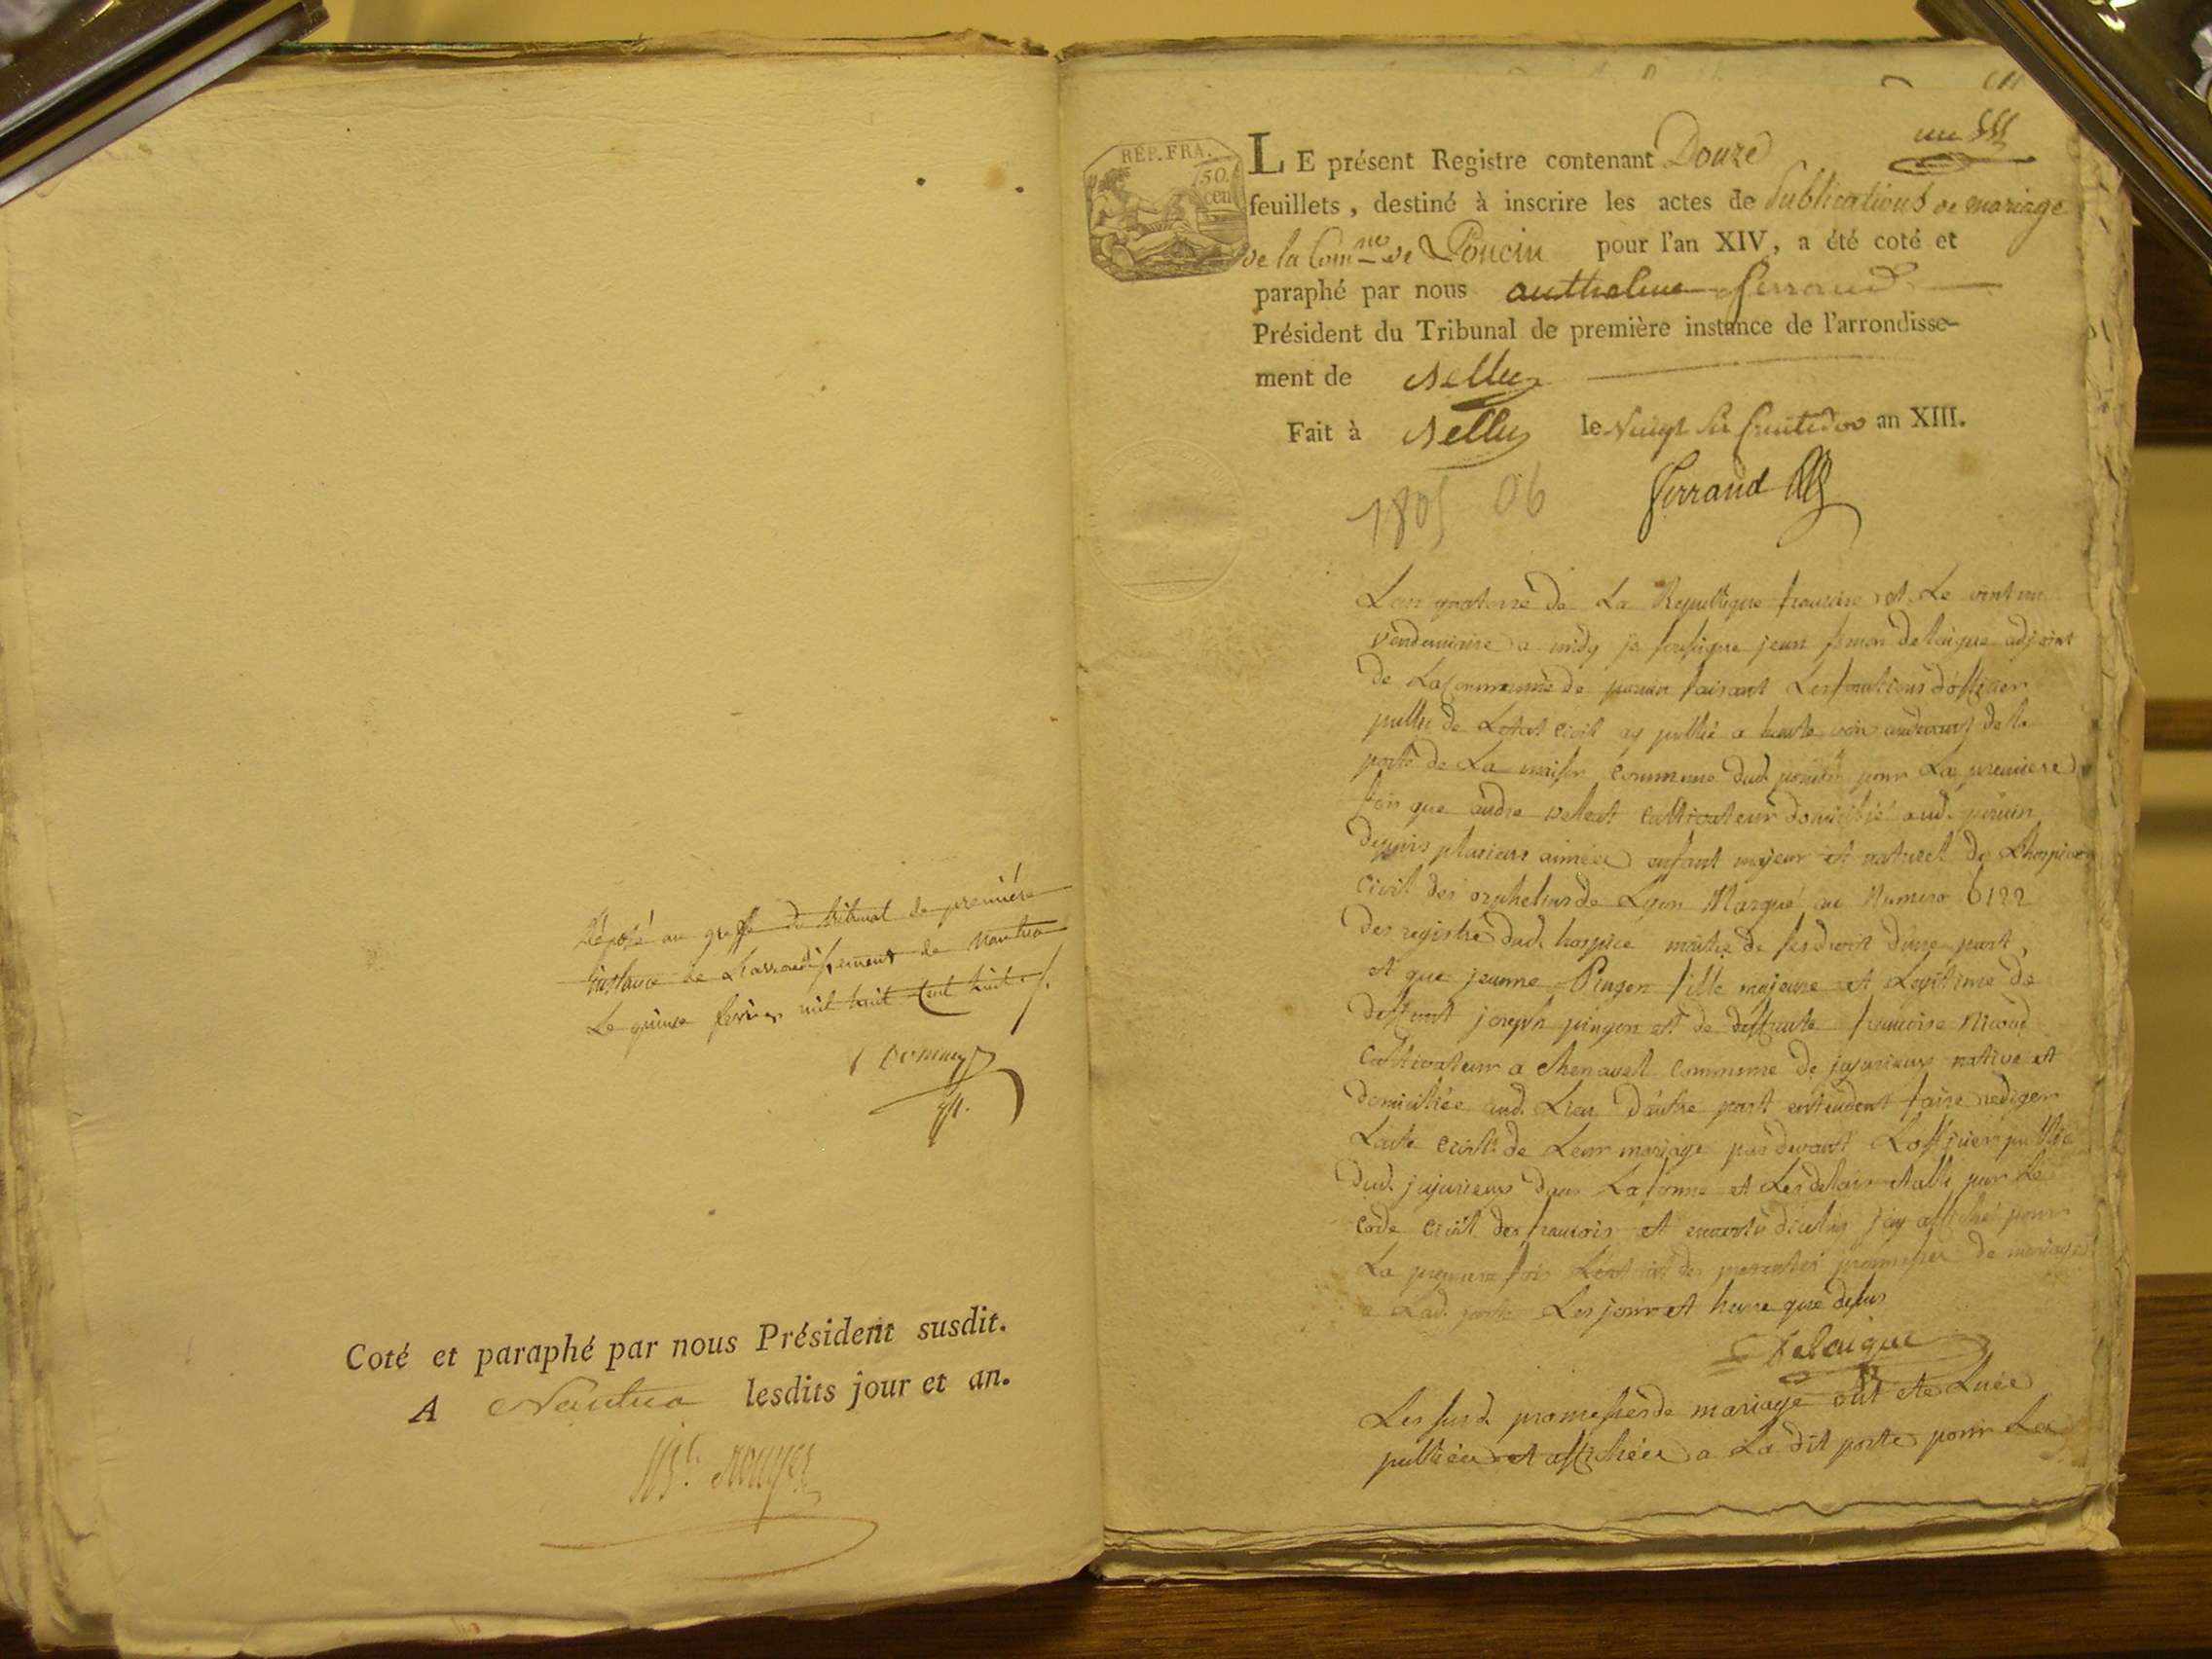 Déposé au greffe du tribunal de première
instance de L'arrondissement de Nantua
Le quinze fevrier mil huit cent huit
Coté et paraphé par nous Président susdit.
A Nantua lesdits jour et an.
un
RÉP. FRA.
50.
cen
LE présent Registre contenant Douze
feuillets, destiné à inscrire les actes de Publications de mariage
de la Comne de Poncin pour l'an XIV, a été coté et
paraphé par nous anthelme ferrand
Président du Tribunal de première instance de l'arrondisse-
ment de Belley
Fait à Belley le Vingt six fructidor an XIII.
1805 06
ferrand
Lan quatorze de La Republique francaise et Le vint un
vendemiaire a midy je sousigne jean simon delaigue adjoint
de La Commune de poncin faisant Les fonctions d'officier
public de Letat civil ay publié a haute voix audevant de la
porte de La maison Commune dud. poncin pour La premiere
fois que andre cultivateur domicilié aud. poncin
depuis plusieurs année enfant majeur et naturel de Lhospice
civil des orphelins de Lyon Marqué au Numero 6122
des registre dud. hospice maitre de ses droit d'une part,
et que jeanne Pingon fille majeure et Legitime de
deffunt joseph pingon et de deffunte francoise Nicoud
cultivateur a Chenavel commune de jujurieux native et
domiciliée aud. Lieu d'autre part entendent faire rediger
Lacte civil de Leur mariage pardevant Lofficier public
dud. jujurieux dans La forme et Les delais etabli par Le
code civil des francois et envertu dicelui j'ay affiché pour
La premiere fois Lextrait des presentes promesses de mariage
a Lad. porte Les jour et heure que desus
Delaigue
Les susd. promesses de mariage ont été Luée
publiées et affichées a La dit porte pour La